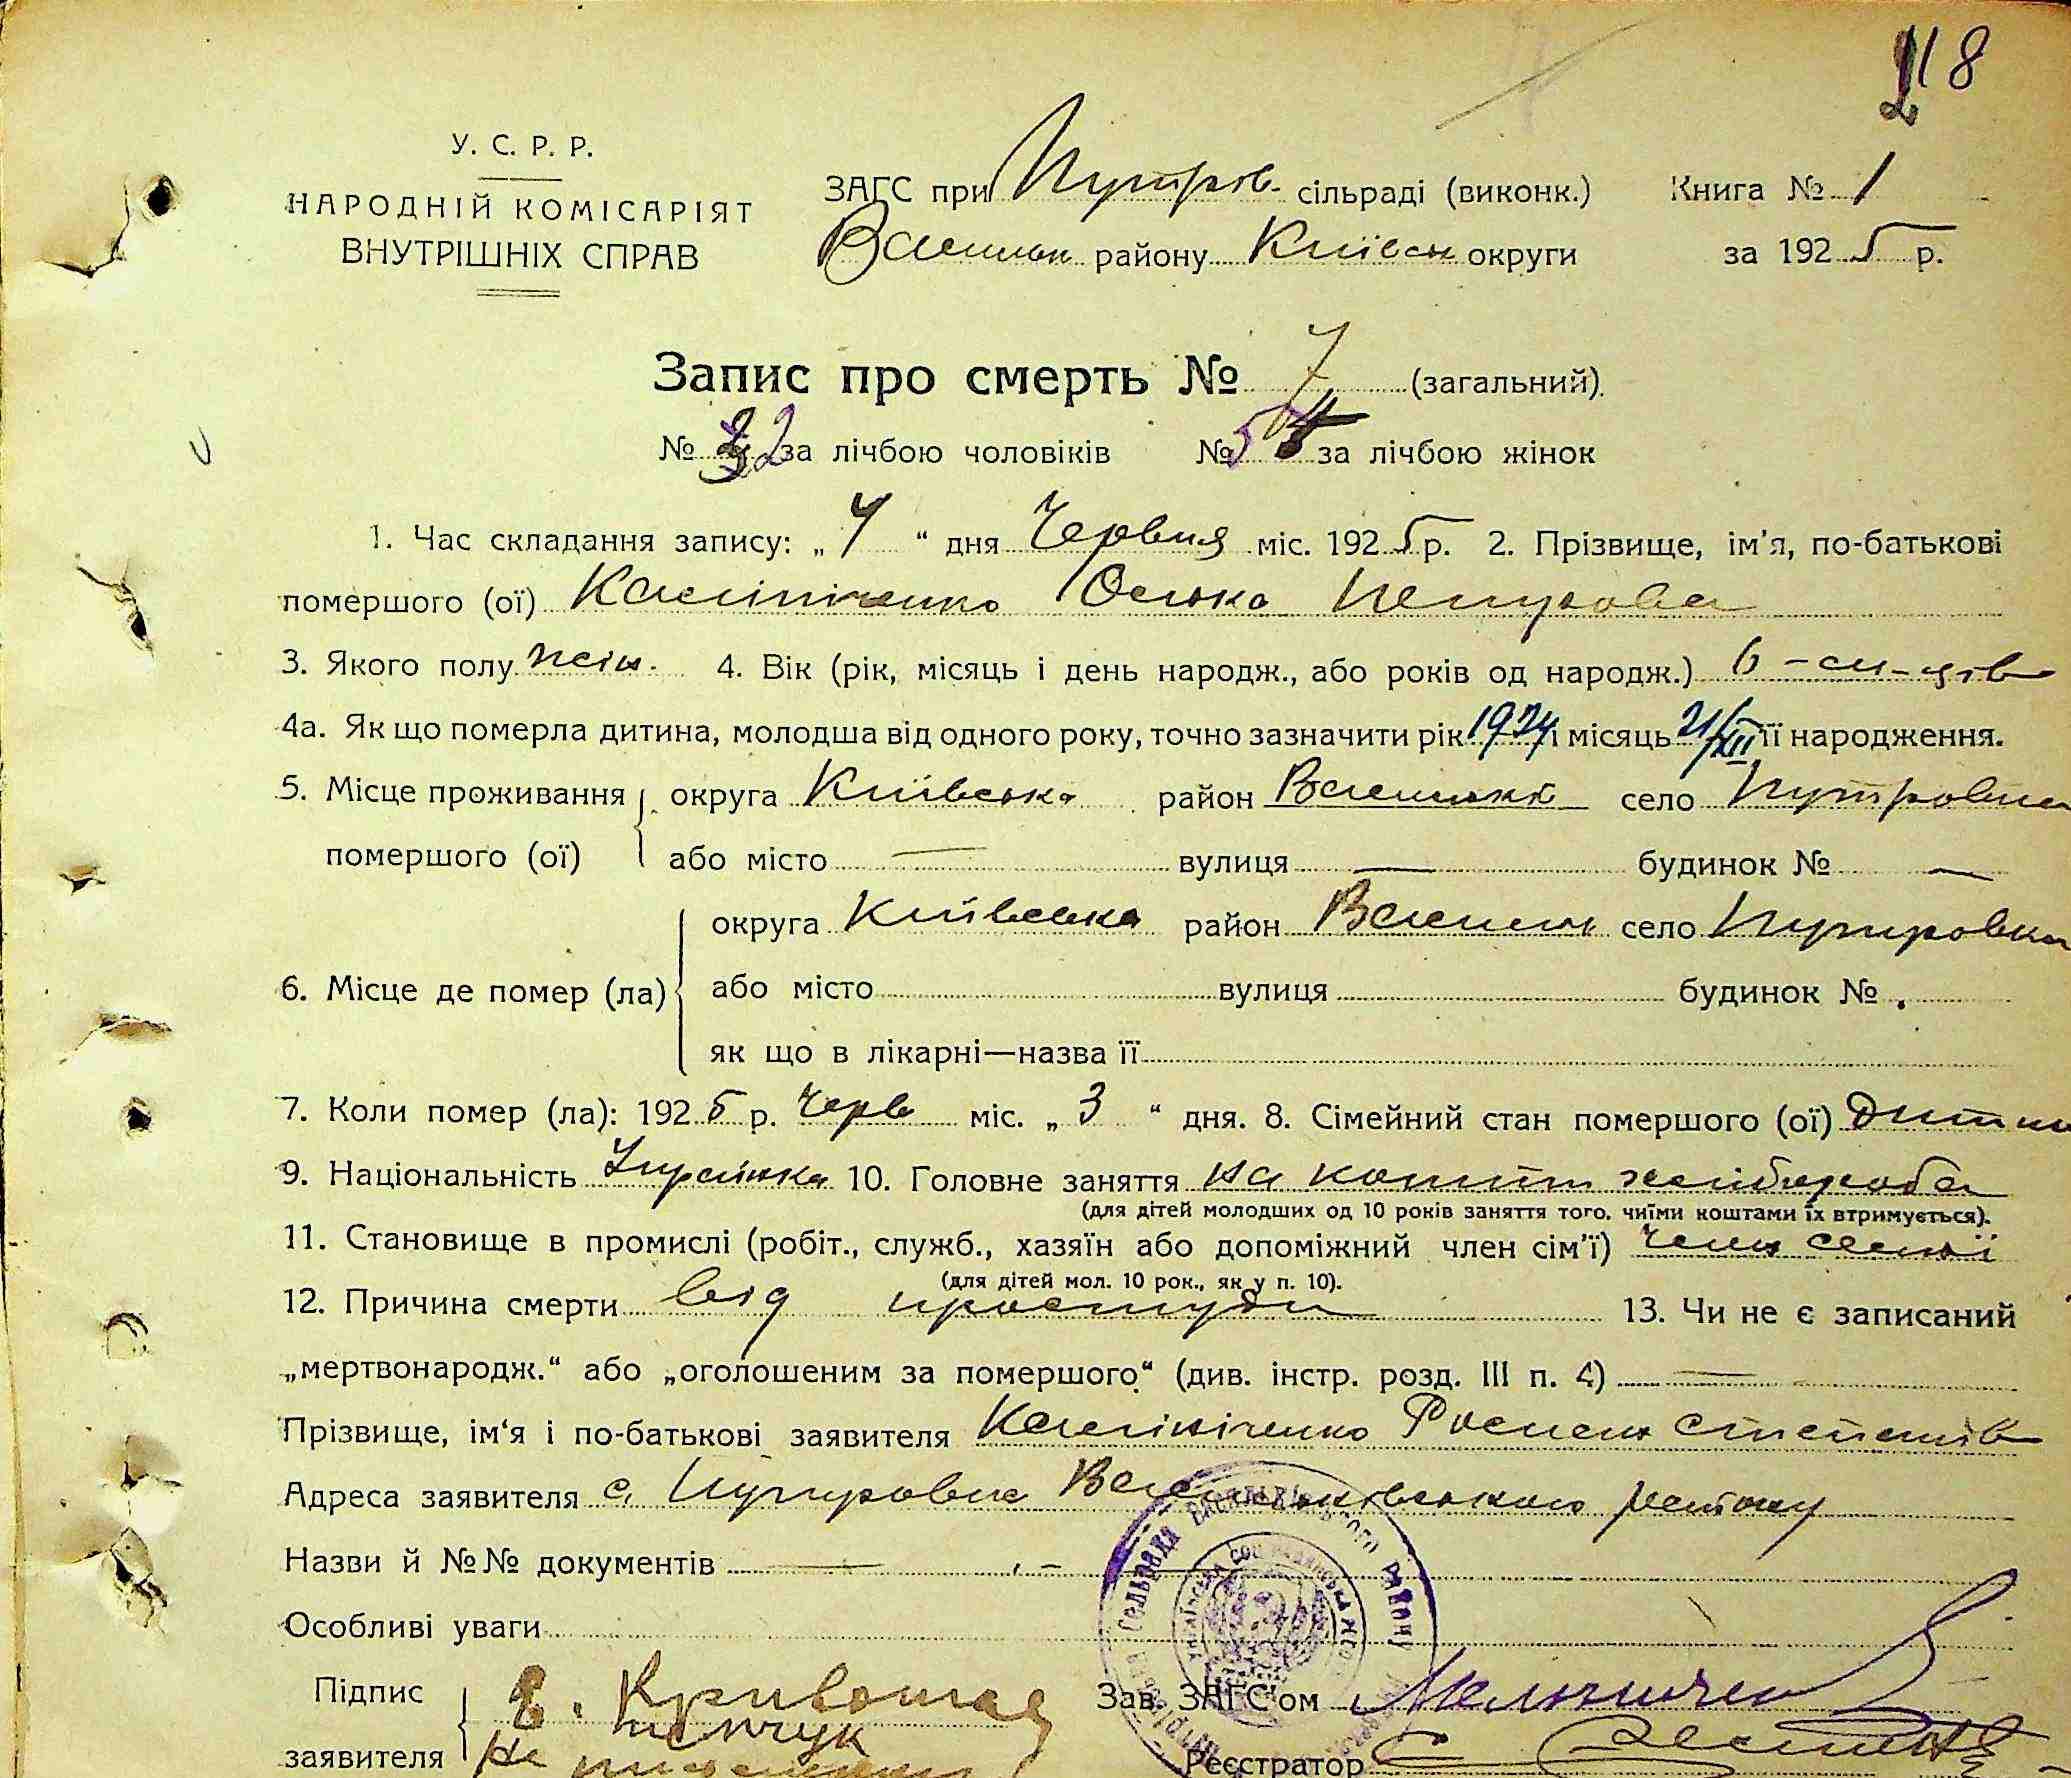 118
У. С. Р. Р.
НАРОДНІЙ КОМІСАРІЯТ
ВНУТРІШНІХ СПРАВ
ЗАГС при Путров. сільраді (виконк.) Книга № 1
Васильк району Київськ округи за 1925 р.
Запис про смерть № 7 (загальний).
№ 2 за лічбою чоловіків № 5 за лічбою жінок
1. Час складання запису: „4“ дня Червня міс. 1925 р. 2. Прізвище, ім'я, по-батькові
помершого (ої) Калініченко
3. Якого полу жін. 4. Вік (рік, місяць і день народж., або років од народж.) 6-м-ців
4а. Як що померла дитина, молодша від одного року, точно зазначити рік 1924 і місяць 21/XII її народження.
5. Місце проживання округа Київська район Васильк село Путровка
помершого (ої) або місто — вулиця — будинок № —
округа Київська район Васильк село Путровка
6. Місце де помер (ла) або місто вулиця будинок №
як що в лікарні—назва її
7. Коли помер (ла): 1925 р. Черв міс. „3“ дня. 8. Сімейний стан помершого (ої) дитина
9. Національність Українка 10. Головне заняття на кошти хлібороба
(для дітей молодших од 10 років заняття того, чиїми коштами їх втримується).
11. Становище в промислі (робіт., служб., хазяїн або допоміжний член сім'ї) член семьї
(для дітей мол. 10 рок., як у п. 10).
12. Причина смерти від простуди 13. Чи не є записаний
„мертвонародж.“ або „оголошеним за помершого“ (див. інстр. розд. III п. 4) —
Прізвище, ім'я і по-батькові заявителя Калініченко Роман Степанів
Адреса заявителя с. Путровка Васильківського району
Назви й №№ документів —
Особливі уваги
Підпис
заявителя
Зав. ЗАГС'ом Мельниченко
Реєстратор
Сельрада Васильківського району